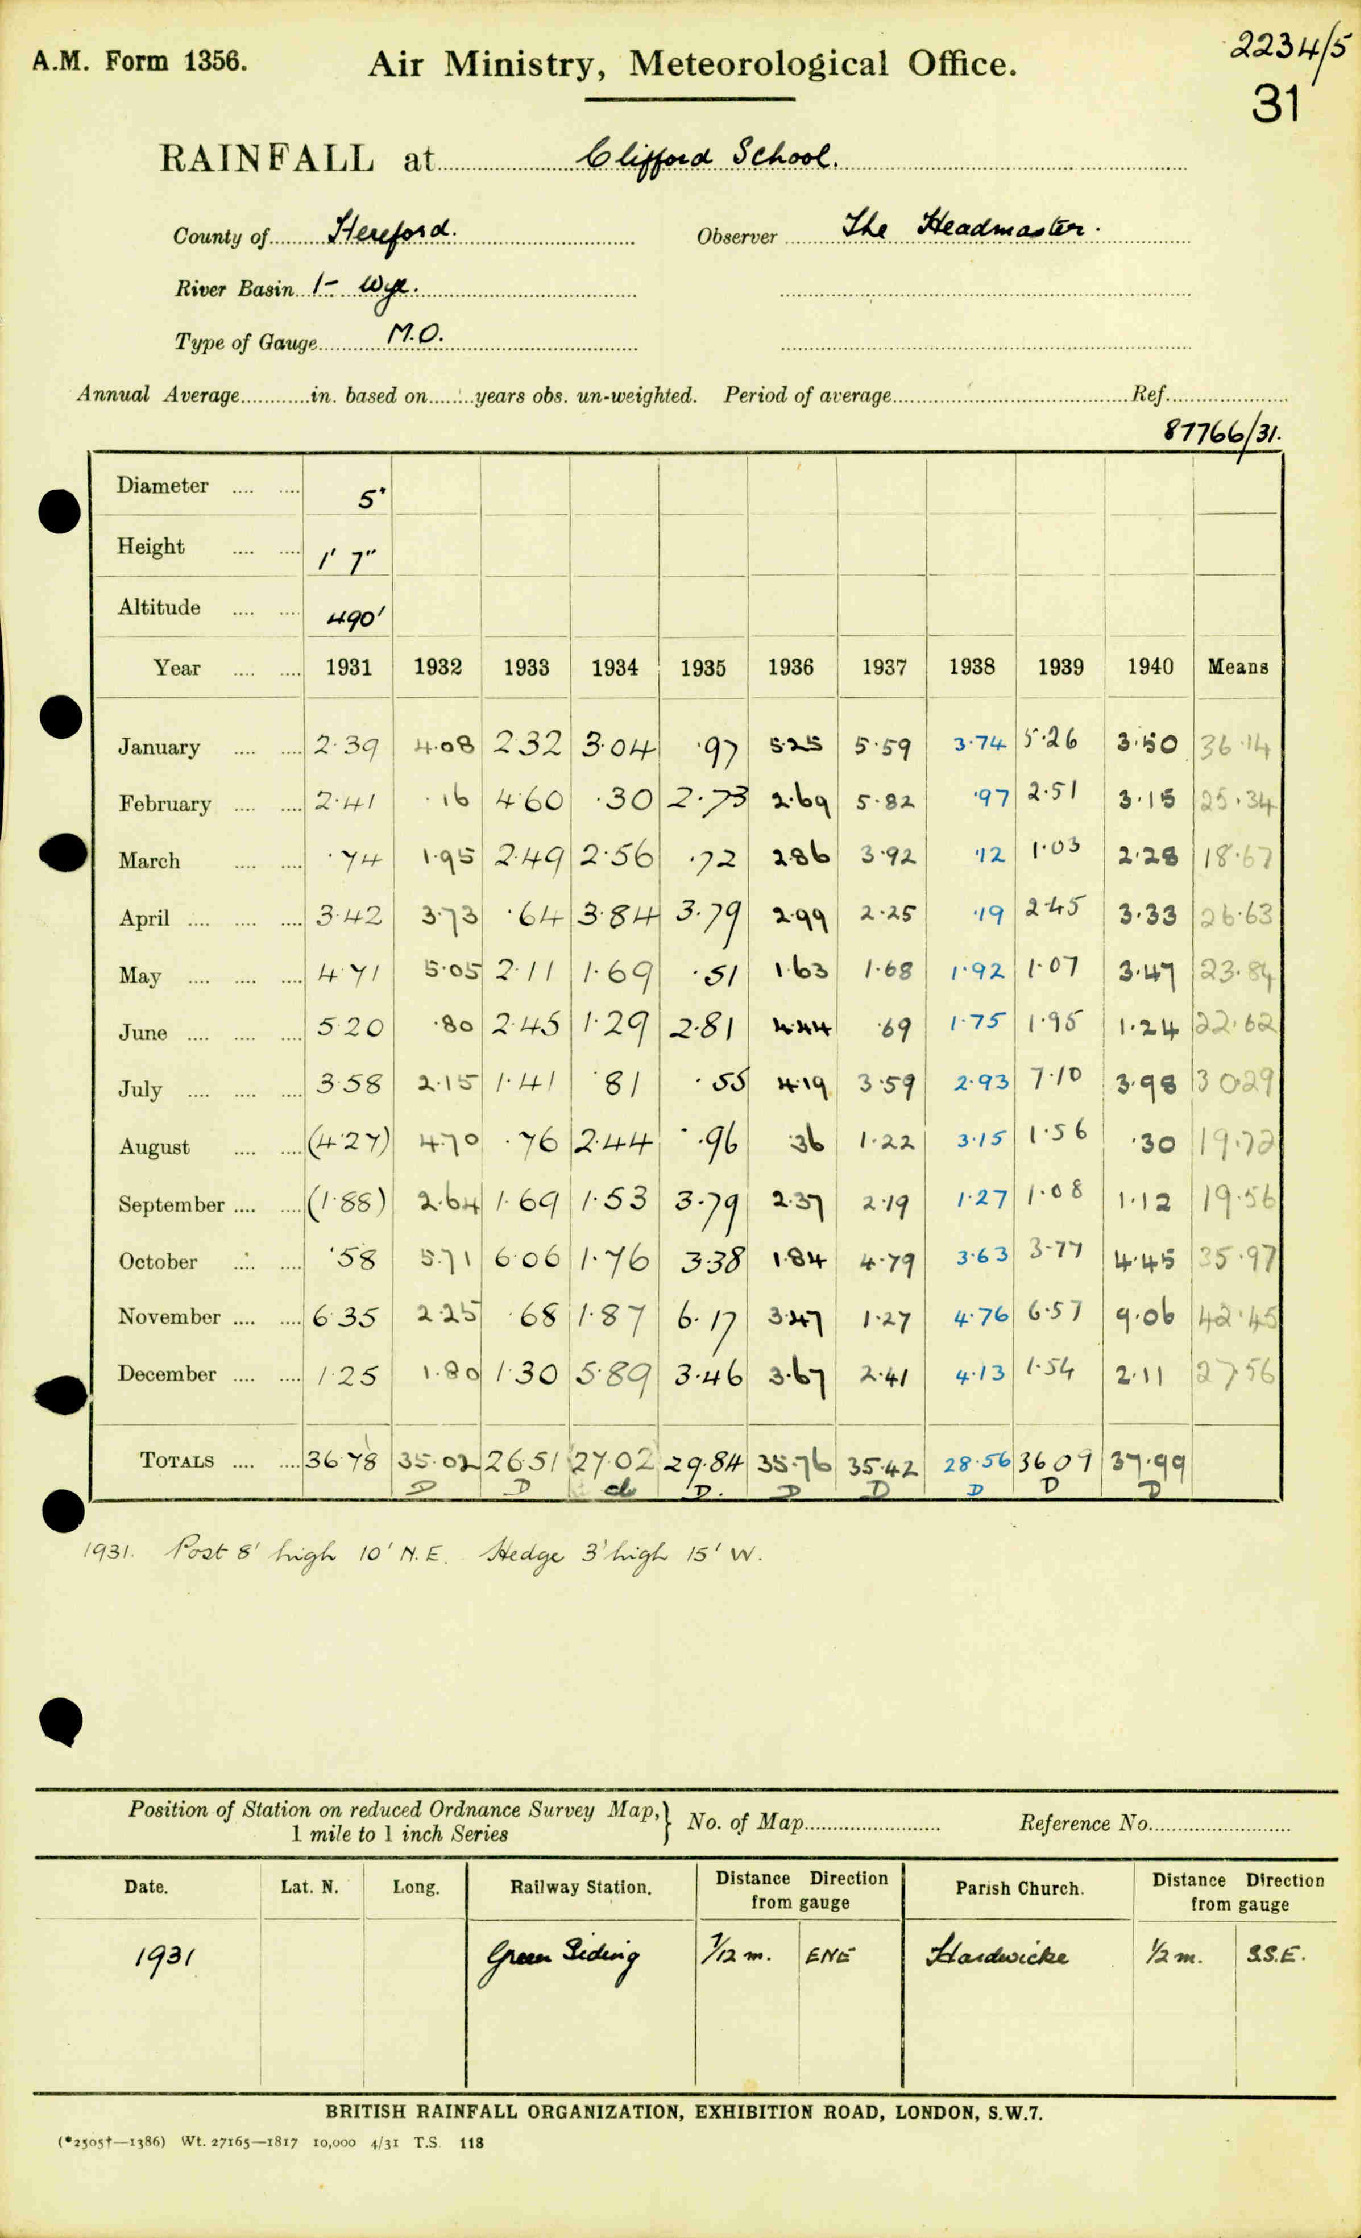 A.M. Form 1356.
Air Ministry, Meteorological Office.
2234/5
31
RAINFALL at Clifford School.
County of Hereford. Observer The Headmaster.
River Basin 1- Wye.
Type of Gauge M.O.
Annual Average in. based on years obs. un-weighted. Period of average Ref.
87766/31.
Diameter 5"
Height 1' 7"
Altitude 490'
Year 1931 1932 1933 1934 1935 1936 1937 1938 1939 1940 Means
January 2·39 4·08 2 32 3·04 ·97 5·25 5·59 3·74 5·26 3·50 36·14
February 2·41 ·16 4·60 ·30 2·73 2·69 5·82 ·97 2·51 3·15 25·34
March ·74 1·95 2·49 2·56 ·72 2 86 3·92 ·12 1·03 2·28 18·67
April 3·42 3·73 ·64 3·84 3·79 2·99 2·25 ·19 2·45 3·33 26·63
May 4·71 5·05 2·11 1·69 ·51 1·63 1·68 1·92 1·07 3·47 23·84
June 5·20 ·80 2·45 1·29 2·81 4·44 ·69 1·75 1·95 1·24 22·62
July 3·58 2·15 1·41 81 ·55 4·19 3·59 2·93 7·10 3·98 30 29
August (4·27) 4·70 ·76 2·44 ·96 ·36 1·22 3·15 1·56 ·30 19·72
September (1·88) 2·64 1·69 1·53 3·79 2·37 2·19 1·27 1·08 1·12 19·56
October ·58 5·71 6·06 1·76 3·38 1·84 4·79 3·63 3·77 4·45 35·97
November 6·35 2·25 ·68 1·87 6·17 3·47 1·27 4·76 6·57 9·06 42·45
December 1·25 1·80 1·30 5·89 3·46 3·67 2·41 4·13 1·54 2·11 27·56
TOTALS 36·78 35·02 26 51 27·02 29·84 35·76 35·42 28·56 36 09 37·99
D D d D. D D D D D
1931. Post 8' high 10' N.E. Hedge 3' high 15' W.
Position of Station on reduced Ordnance Survey Map, } No. of Map Reference No.
1 mile to 1 inch Series
Date. Lat. N. Long. Railway Station. Distance Direction from gauge Parish Church. Distance Direction from gauge
1931 Green Siding 1/12 m. ENE Hardwicke 1/2 m. S.S.E.
BRITISH RAINFALL ORGANIZATION, EXHIBITION ROAD, LONDON, S.W.7.
(*2505†—1386) Wt. 27165—1817 10,000 4/31 T.S. 118